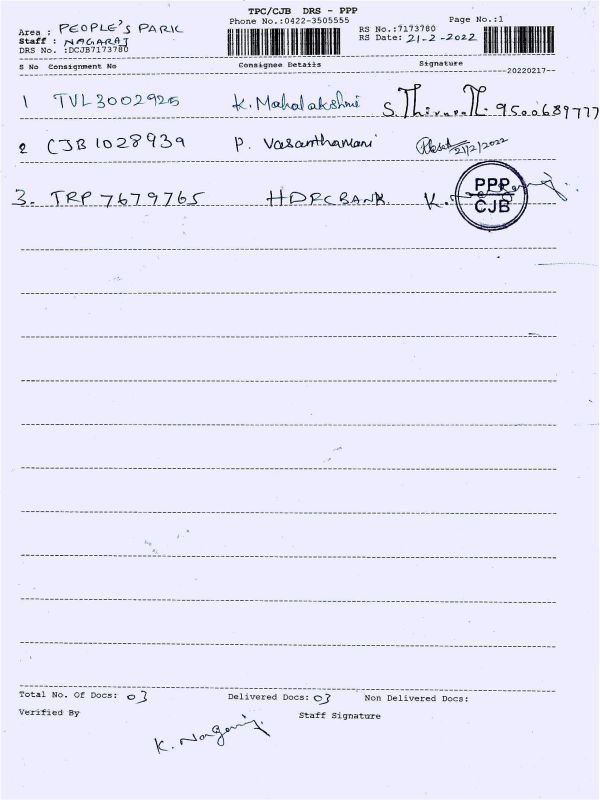 TPC/CJB DRS - PPP
Phone No.:0422-3505555
Page No.:1
Area : PEOPLE'S PARK
Staff : NAGARAJ
DRS No. :DCJB7173780
RS No.:7173780
RS Date: 21-2-2022
S No Consignment No Consignee Details Signature
20220217
1 TVL3002925 K. Mahalakshmi S. 9500689777
2 CJB1028939 P. Vasanthamani 21/2/2022
3. TRP 7679765 HDFC BANK K.
PPP
CJB
Total No. Of Docs: 03 Delivered Docs: 03 Non Delivered Docs:
Verified By Staff Signature
K. Nagaraj